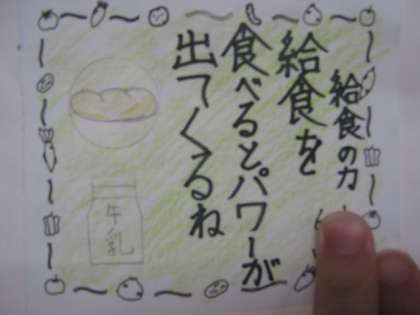 給食の力
給食を
食べるとパワーが
出てくるね
牛乳